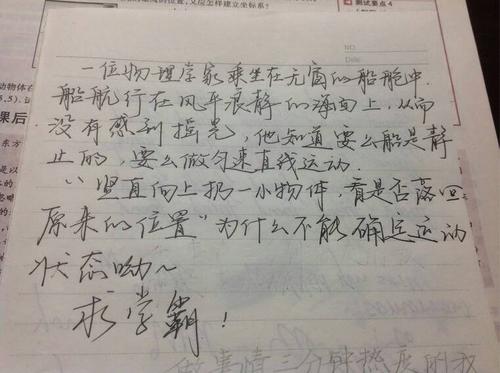 测试要点4
NO.
Date
一位物理学家乘坐在无窗的船舱中.
船航行在风平浪静的海面上,从而
没有感到摇晃,他知道要么船是静
止的,要么做匀速直线运动.
“竖直向上扔一小物体,看是否落回
原来的位置”为什么不能确定运动
状态呦~
求学霸!
做事情三分钟热度的我